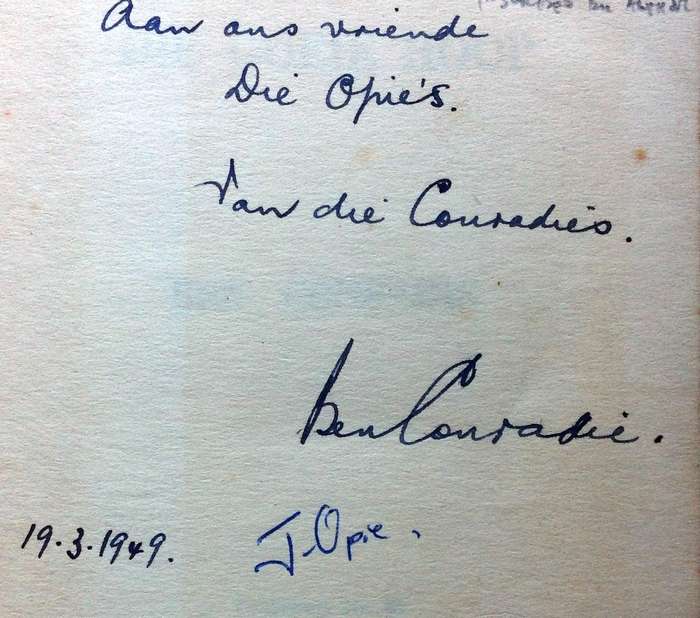 Aan ons vriende
Die Opie's.
Van die Conradie's.
Ben Conradie.
19.3.1949.
J. Opie.